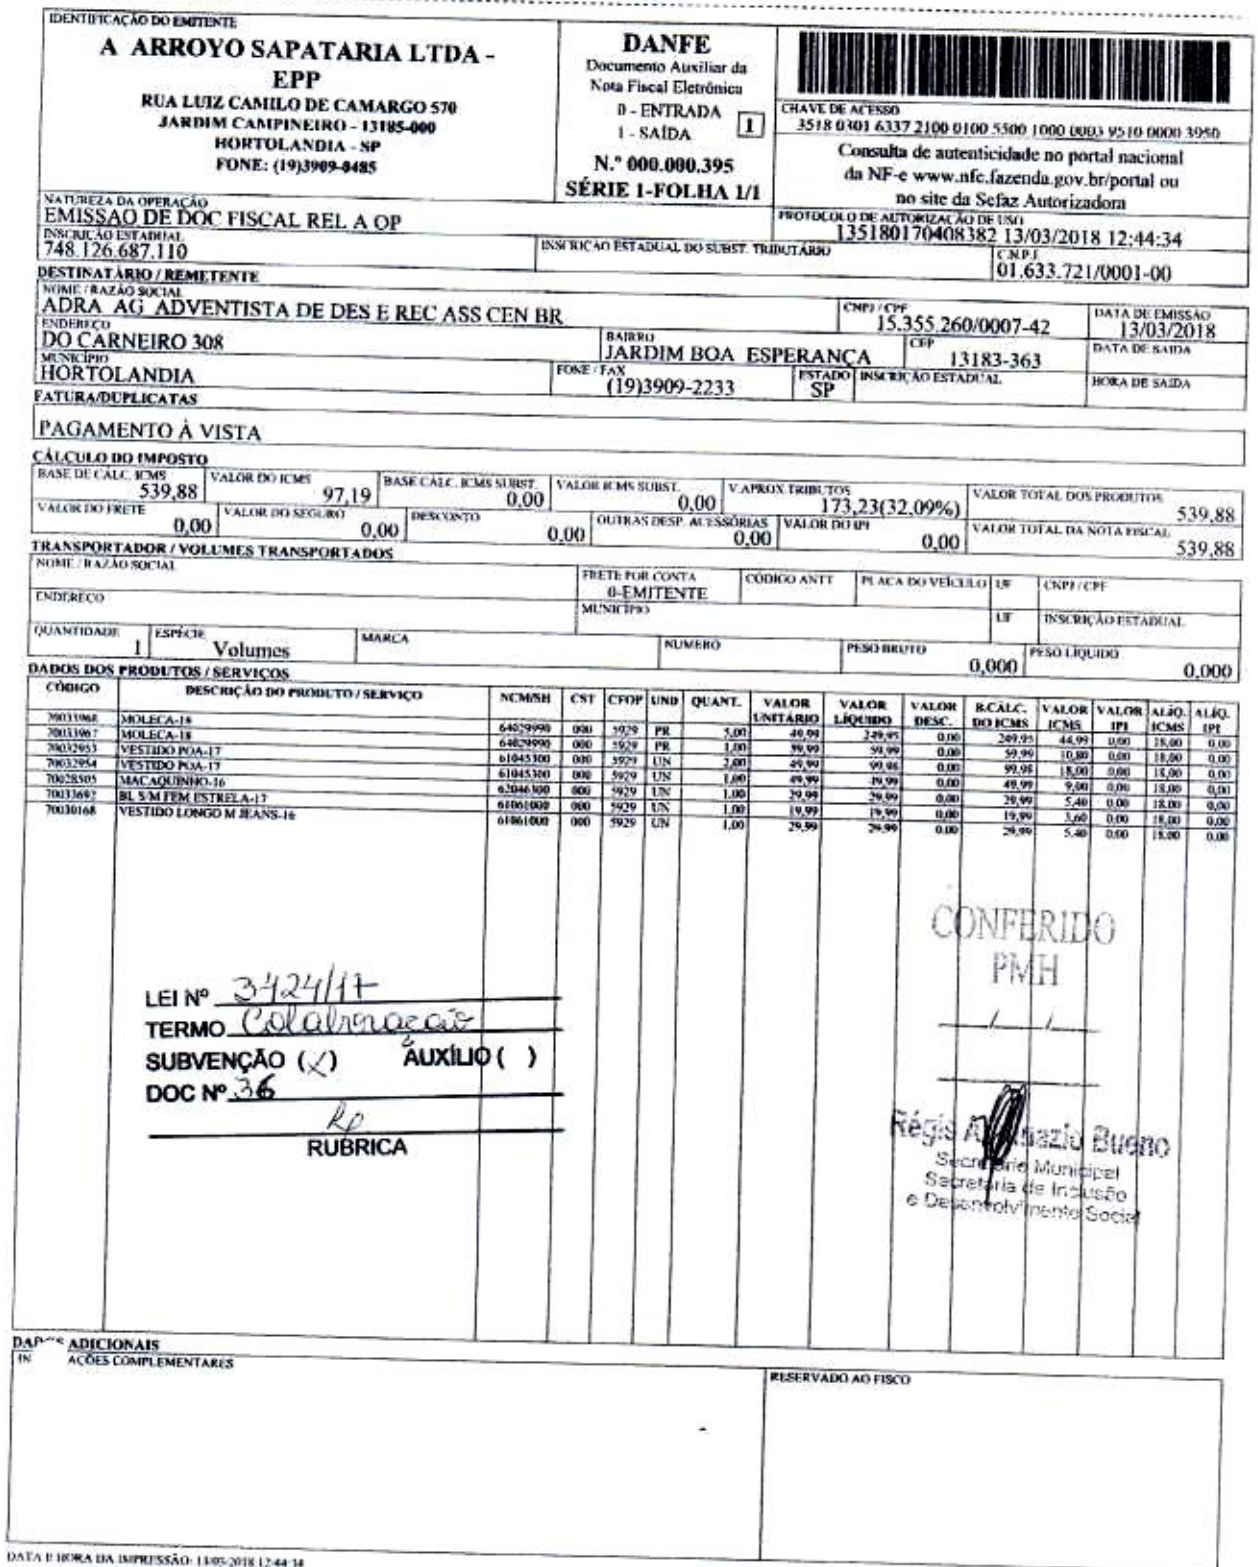 IDENTIFICAÇÃO DO EMITENTE
A ARROYO SAPATARIA LTDA -
EPP
RUA LUIZ CAMILO DE CAMARGO 570
JARDIM CAMPINEIRO - 13185-000
HORTOLANDIA - SP
FONE: (19)3909-8485
DANFE
Documento Auxiliar da
Nota Fiscal Eletrônica
0 - ENTRADA
1 - SAÍDA
1
N.º 000.000.395
SÉRIE 1-FOLHA 1/1
CHAVE DE ACESSO
3518 0301 6337 2100 0100 5500 1000 0003 9510 0000 3950
Consulta de autenticidade no portal nacional
da NF-e www.nfe.fazenda.gov.br/portal ou
no site da Sefaz Autorizadora
NATUREZA DA OPERAÇÃO
EMISSAO DE DOC FISCAL REL A OP
PROTOCOLO DE AUTORIZAÇÃO DE USO
135180170408382 13/03/2018 12:44:34
INSCRIÇÃO ESTADUAL
748.126.687.110
INSCRIÇÃO ESTADUAL DO SUBST. TRIBUTÁRIO
C.N.P.J.
01.633.721/0001-00
DESTINATÁRIO / REMETENTE
NOME / RAZÃO SOCIAL
ADRA AG ADVENTISTA DE DES E REC ASS CEN BR
CNPJ / CPF
15.355.260/0007-42
DATA DE EMISSÃO
13/03/2018
ENDEREÇO
DO CARNEIRO 308
BAIRRO
JARDIM BOA ESPERANÇA
CEP
13183-363
DATA DE SAIDA
MUNICÍPIO
HORTOLANDIA
FONE / FAX
(19)3909-2233
ESTADO
SP
INSCRIÇÃO ESTADUAL
HORA DE SAIDA
FATURA/DUPLICATAS
PAGAMENTO À VISTA
CÁLCULO DO IMPOSTO
BASE DE CALC. ICMS
539,88
VALOR DO ICMS
97,19
BASE CALC. ICMS SUBST.
0,00
VALOR ICMS SUBST.
0,00
V.APROX TRIBUTOS
173,23(32,09%)
VALOR TOTAL DOS PRODUTOS
539,88
VALOR DO FRETE
0,00
VALOR DO SEGURO
0,00
DESCONTO
0,00
OUTRAS DESP. ACESSÓRIAS
0,00
VALOR DO IPI
0,00
VALOR TOTAL DA NOTA FISCAL
539,88
TRANSPORTADOR / VOLUMES TRANSPORTADOS
NOME / RAZÃO SOCIAL
FRETE POR CONTA
0-EMITENTE
CÓDIGO ANTT
PLACA DO VEÍCULO
UF
CNPJ / CPF
ENDEREÇO
MUNICÍPIO
UF
INSCRIÇÃO ESTADUAL
QUANTIDADE
1
ESPÉCIE
Volumes
MARCA
NUMERO
PESO BRUTO
0,000
PESO LÍQUIDO
0,000
DADOS DOS PRODUTOS / SERVIÇOS
CÓDIGO DESCRIÇÃO DO PRODUTO / SERVIÇO NCM/SH CST CFOP UND QUANT. VALOR UNITÁRIO VALOR LÍQUIDO VALOR DESC. B.CÁLC. DO ICMS VALOR ICMS VALOR IPI ALÍQ. ICMS ALÍQ. IPI
70033968 MOLECA-18 64029990 000 5929 PR 5,00 49,99 249,95 0,00 249,95 44,99 0,00 18,00 0,00
70033967 MOLECA-18 64029990 000 5929 PR 1,00 59,99 59,99 0,00 59,99 10,80 0,00 18,00 0,00
70032953 VESTIDO POA-17 61045300 000 5929 UN 2,00 49,99 99,98 0,00 99,98 18,00 0,00 18,00 0,00
70032954 VESTIDO POA-17 61045300 000 5929 UN 1,00 49,99 49,99 0,00 49,99 9,00 0,00 18,00 0,00
70028505 MACAQUINHO-16 62046300 000 5929 UN 1,00 29,99 29,99 0,00 29,99 5,40 0,00 18,00 0,00
70033692 BL S/M FEM ESTRELA-17 61061000 000 5929 UN 1,00 19,99 19,99 0,00 19,99 3,60 0,00 18,00 0,00
70030168 VESTIDO LONGO M JEANS-16 61061000 000 5929 UN 1,00 29,99 29,99 0,00 29,99 5,40 0,00 18,00 0,00
CONFERIDO
PMH
LEI Nº 3424/17
TERMO Colaboração
SUBVENÇÃO (X) AUXÍLIO ( )
DOC Nº 36
RUBRICA
Régis Bueno
Secretário Municipal
Secretaria de Inclusão
e Desenvolvimento Social
ADICIONAIS
AÇÕES COMPLEMENTARES
RESERVADO AO FISCO
DATA E HORA DA IMPRESSÃO: 13/03/2018 12:44:34